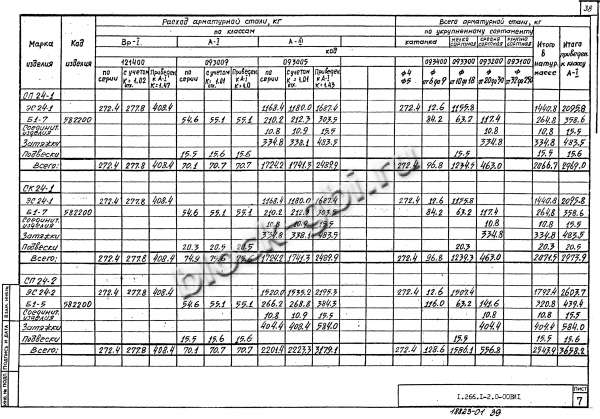 38
Марка изделия
Код изделия
Расход арматурной стали, кг
по классам
Всего арматурной стали, кг
по укрупненному сортаменту
Вр-I
А-I
А-III
катанка
мелко сортная
средне сортная
крупно сортная
Итого в натур. массе
Итого приведен. к классу А-I
код
121400
093009
093005
093400
093300
093200
093100
по серии
с учетом К=1.02
Приведен. к А-I К=1.47
по серии
с учетом К=1.01
Приведен. к А-I К=1.0
по серии
с учетом К=1.01
Приведен. к А-I К=1.43
ф4 ф5
ф от 6 до 9
ф от 10 до 18
ф от 20 до 30
ф от 32 до 250
СП 24-1
ЭС 24-1 272.4 277.8 408.4 1168.4 1180.0 1687.4 272.4 12.6 1155.8 1440.8 2095.8
Б1-7 582200 54.6 55.1 55.1 210.2 212.3 303.5 84.2 63.2 117.4 264.8 358.6
Соединит. изделия 10.8 10.9 15.5 10.8 10.8 15.5
Затяжки 334.8 338.1 483.5 334.8 334.8 483.5
Подвески 15.5 15.6 15.6 15.5 15.5 15.6
Всего: 272.4 277.8 408.4 70.1 70.7 70.7 1724.2 1741.3 2489.9 272.4 96.8 1234.5 463.0 2066.7 2969.0
СК 24-1
ЭС 24-1 272.4 277.8 408.4 1168.4 1180.0 1687.4 272.4 12.6 1155.8 1440.8 2095.8
Б1-7 582200 54.6 55.1 55.1 210.2 212.3 303.5 84.2 63.2 117.4 264.8 358.6
Соединит. изделия 10.8 10.9 15.5 10.8 10.8 15.5
Затяжки 334.8 338.1 483.5 334.8 334.8 483.5
Подвески 20.3 20.5 20.5 20.3 20.3 20.5
Всего: 272.4 277.8 408.4 74.9 75.6 1724.2 1741.3 2489.9 272.4 96.8 1239.3 463.0 2071.5 2973.9
СП 24-2
ЭС 24-2 272.4 277.8 408.4 1520.0 1535.2 2195.3 272.4 12.6 1507.4 1792.4 2603.7
Б1-5 582200 54.6 55.1 55.1 266.2 268.8 384.3 116.0 63.2 141.6 320.8 439.4
Соединит. изделия 10.8 10.9 15.5 10.8 10.8 15.5
Затяжки 404.4 408.4 584.0 404.4 404.4 584.0
Подвески 15.5 15.6 15.6 15.5 15.5 15.6
Всего: 272.4 277.8 408.4 70.1 70.7 70.7 2201.4 2223.3 3179.1 272.4 128.6 1586.1 556.8 2543.9 3658.2
block-gbi.ru
Инв. № подл. Подпись и дата Взам. инв. №
1.266.1-2.0-00ВМ1
Лист
7
18823-01 39